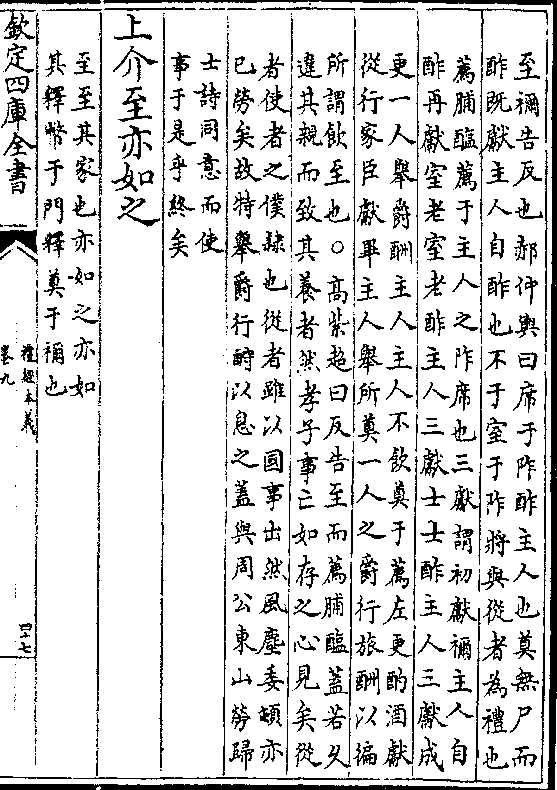 至禰告反也郝仲輿曰席于阼酢主人也奠無尸而
酢既獻主人自酢也不于室于阼將與從者為禮也
薦脯醢薦于主人之阼席也三獻謂初獻禰主人自
酢再獻室老室老酢主人三獻士士酢主人三獻成
更一人舉爵酬主人主人不飲奠于薦左更酌酒獻
從行家臣獻畢主人舉所奠一人之爵行旅酬以徧
所謂飲至也○高紫超曰反告至而薦脯醢蓋若久
違其親而致其養者然孝子事亡如存之心見矣從
者使者之僕隸也從者雖以國事出然風塵委頓亦
已勞矣故特舉爵行酬以息之蓋與周公東山勞歸
士詩同意而使
事于是乎終矣
上介至亦如之
至至其家也亦如之亦如
其釋幣于門釋奠于禰也
欽定四庫全書
禮經本義
卷九
四十七